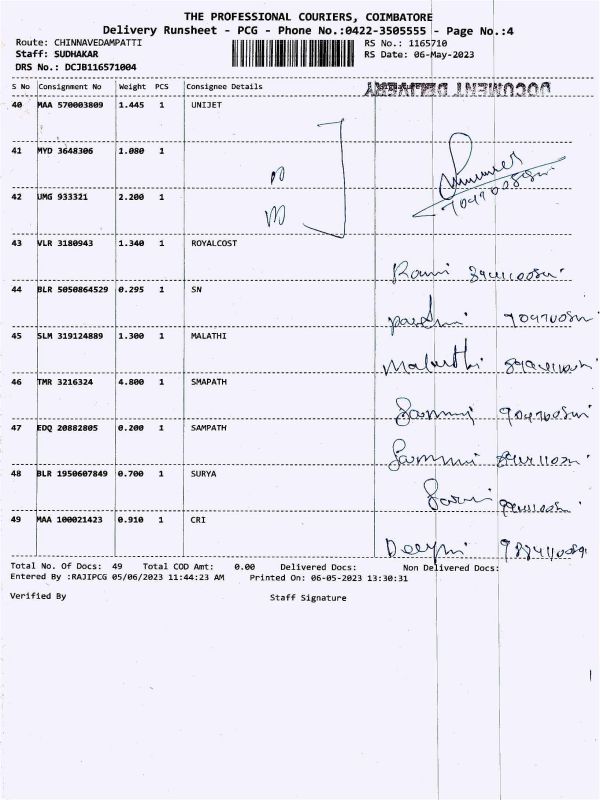 THE PROFESSIONAL COURIERS, COIMBATORE
Delivery Runsheet - PCG - Phone No.:0422-3505555 - Page No.:4
Route: CHINNAVEDAMPATTI RS No.: 1165710
Staff: SUDHAKAR RS Date: 06-May-2023
DRS No.: DCJB116571004
S No Consignment No Weight PCS Consignee Details
DOCUMENT DELIVERY
40 MAA 570003809 1.445 1 UNIJET
41 MYD 3648306 1.080 1
42 UMG 933321 2.200 1
43 VLR 3180943 1.340 1 ROYALCOST
44 BLR 5050864529 0.295 1 SN
45 SLM 319124889 1.300 1 MALATHI
Malathi
46 TMR 3216324 4.800 1 SMAPATH
47 EDQ 20882805 0.200 1 SAMPATH
48 BLR 1950607849 0.700 1 SURYA
49 MAA 100021423 0.910 1 CRI
Total No. Of Docs: 49 Total COD Amt: 0.00 Delivered Docs: Non Delivered Docs:
Entered By :RAJIPCG 05/06/2023 11:44:23 AM Printed On: 06-05-2023 13:30:31
Verified By Staff Signature